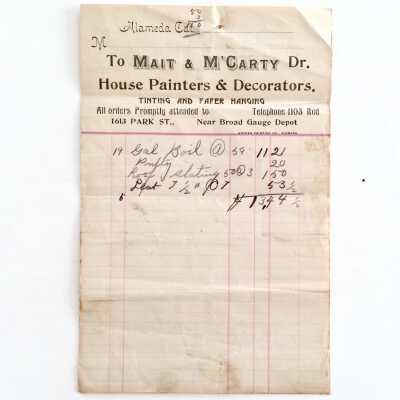 50
3
Alameda Cal
M
To Mait & McCarty Dr.
House Painters & Decorators.
TINTING AND PAPER HANGING
All orders Promptly attended to. Telephone 1193 Red
1613 PARK ST., Near Broad Gauge Depot
19 Gal Boil @ 59. 11 21
Putty 20
Roof Slating 50 @ 3 1.50
7 1/2 " @ 7 53 1/2
$ 13,44 1/2